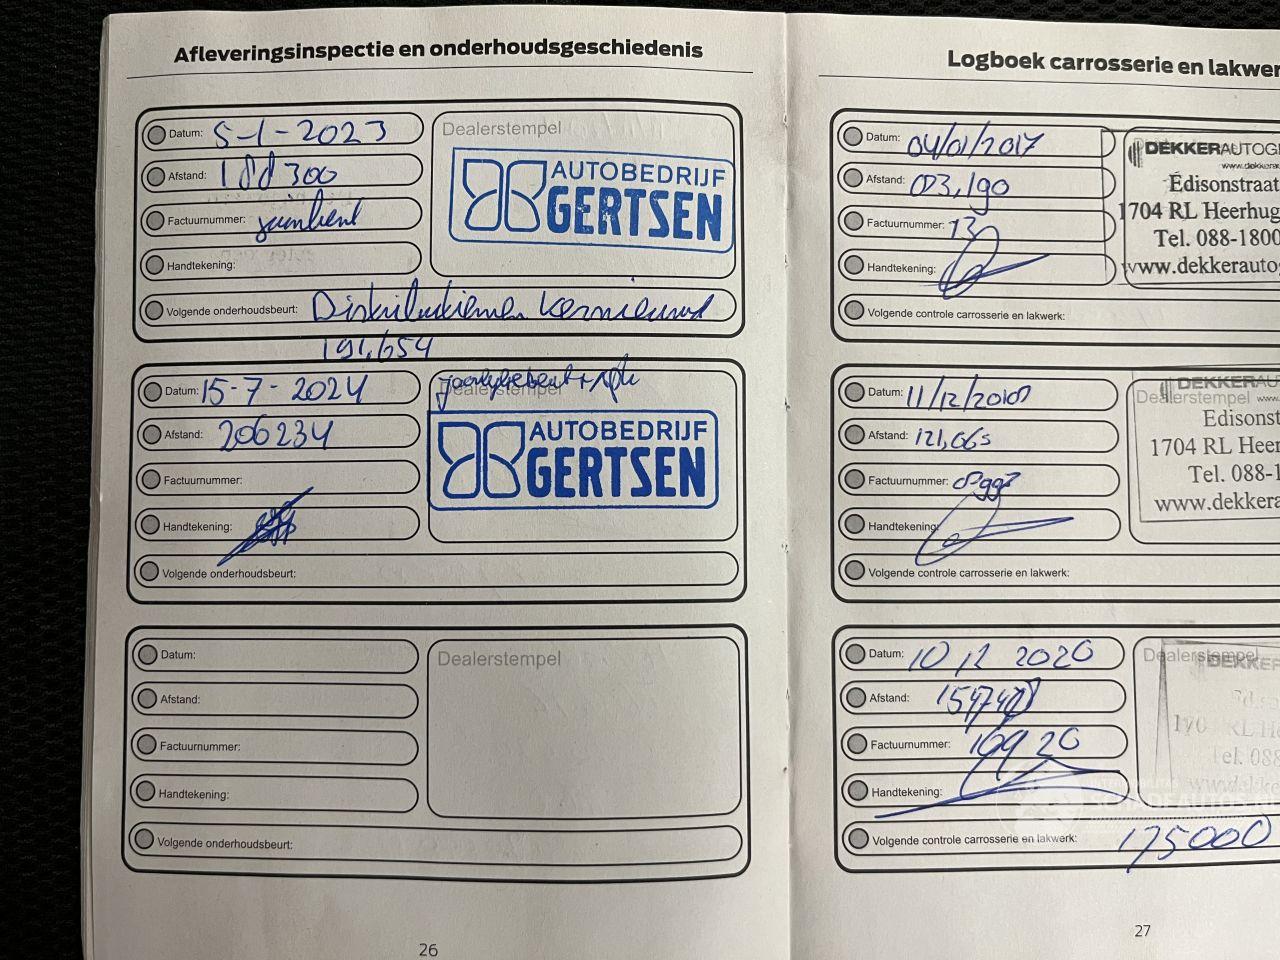 Afleveringsinspectie en onderhoudsgeschiedenis
Datum: 5-1-2023
Afstand: 188300
Factuurnummer:
Handtekening:
Volgende onderhoudsbeurt: Distributieriem vernieuwd
191,654
Dealerstempel
AUTOBEDRIJF
GERTSEN
Datum: 15-7-2024
Afstand: 206234
Factuurnummer:
Handtekening:
Volgende onderhoudsbeurt:
Dealerstempel
AUTOBEDRIJF
GERTSEN
Datum:
Afstand:
Factuurnummer:
Handtekening:
Volgende onderhoudsbeurt:
Dealerstempel
26
Logboek carrosserie en lakwer
Datum: 04/01/2017
Afstand: 003,190
Factuurnummer: 13
Handtekening:
Volgende controle carrosserie en lakwerk:
DEKKERAUTOG
Edisonstraat
1704 RL Heerhug
Tel. 088-1800
www.dekkerauto
Datum: 11/12/
Afstand: 121,065
Factuurnummer:
Handtekening:
Volgende controle carrosserie en lakwerk:
DEKKERAU
Dealerstempel www.
Edisonst
1704 RL Heer
Tel. 088-1
www.dekkera
Datum: 10 12 2020
Afstand:
Factuurnummer: 10920
Handtekening:
Volgende controle carrosserie en lakwerk: 175000
Dealerstempel
DEKKER
Tel. 088
SCHADEAUTOS.NL
27